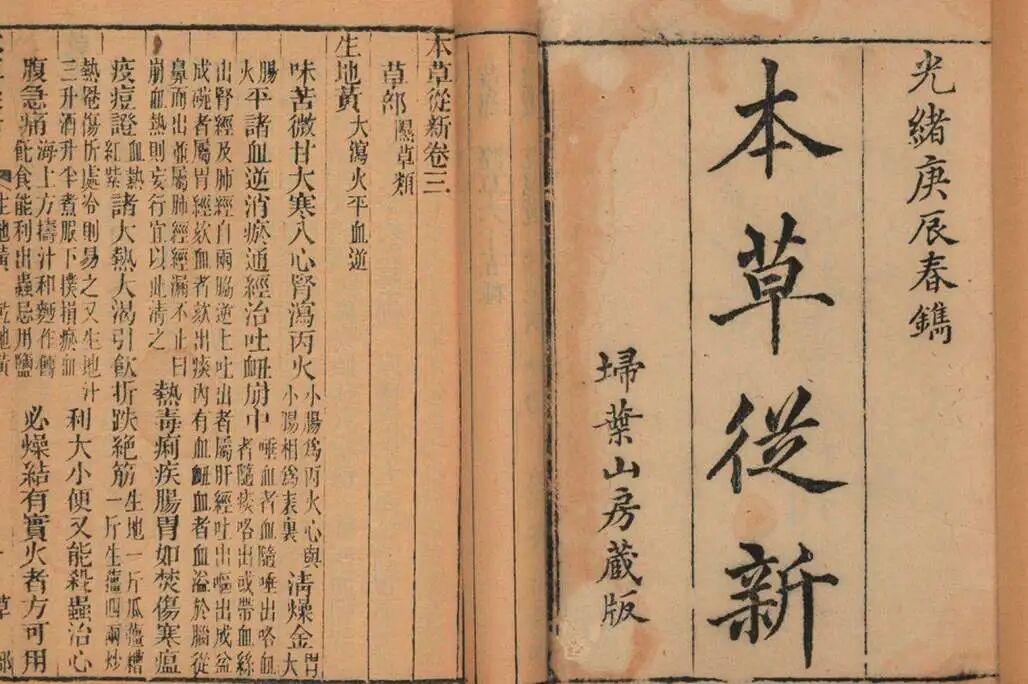 光緒庚辰春鐫
本草從新
埽葉山房藏版
本草從新卷三
草部隰草類
生地黃大瀉火平血逆
味苦微甘大寒入心腎瀉丙火小腸爲丙火心與小腸相爲表裏清燥金胃大
腸火平諸血逆消瘀通經治吐衄崩中唾血者血隨唾出咯血者隨痰咯出或帶血絲
出腎經及肺經自兩脇逆上吐出者屬肝經吐出嘔出成盆
成碗者屬胃經欬血者欬出痰內有血衄血者血溢於腦從
鼻而出並屬肺經經漏不止曰崩血熱則妄行宜以此清之熱毒痢疾腸胃如焚傷寒瘟
疫痘證血熱紅紫諸大熱大渴引飲折跌絕筋生地一斤瓜薑糟一斤生薑四兩炒
熱罨傷折處冷則易之又生地汁三升酒升半煮服下撲損瘀血利大小便又能殺蟲治心
腹急痛海上方擣汁和麪作餺飥食能利出蟲忌用鹽必燥結有實火者方可用
生地黃 乾地黃